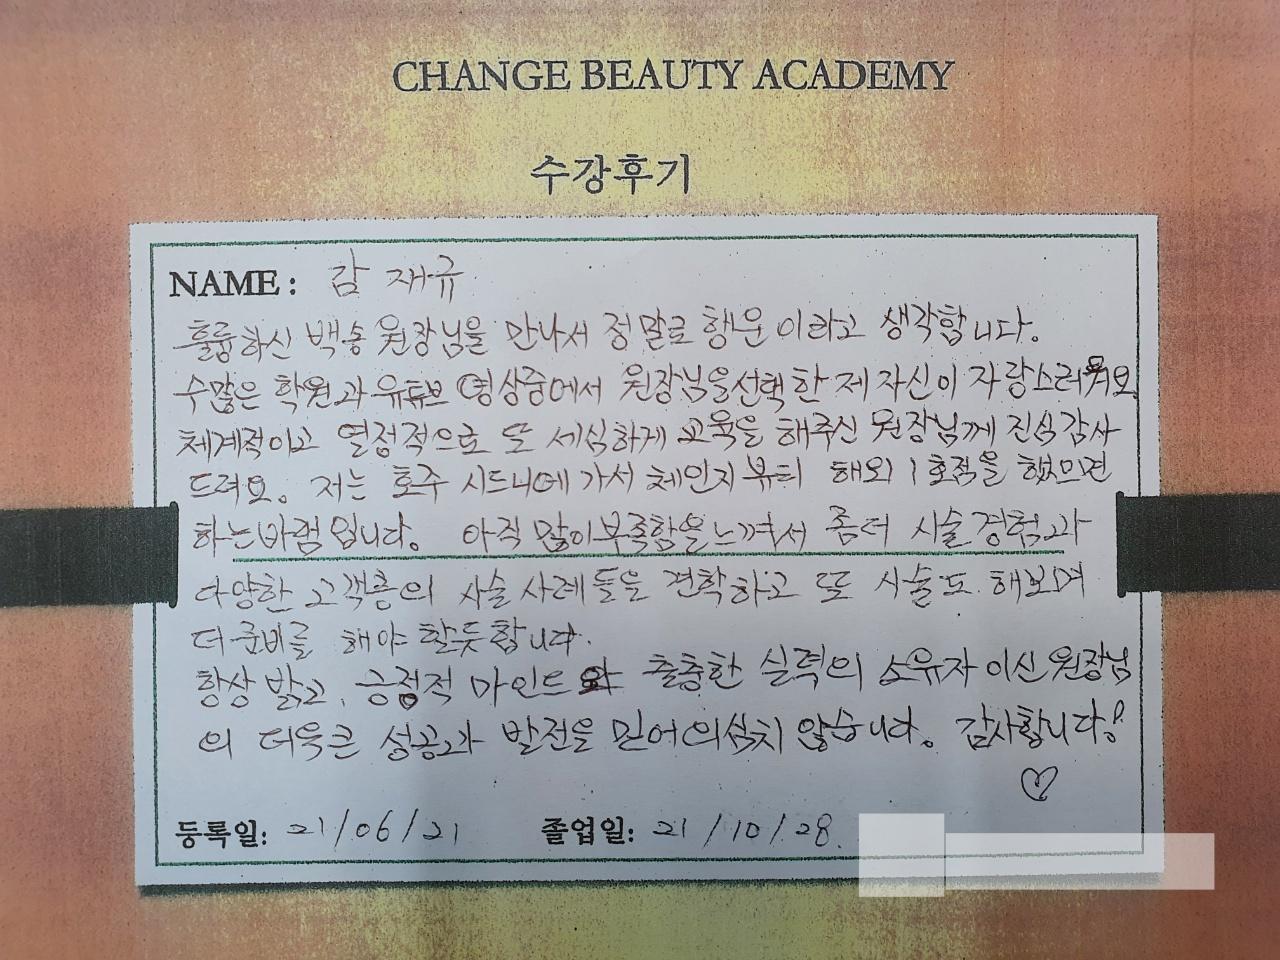 CHANGE BEAUTY ACADEMY
수강후기
NAME : 감 재규
훌륭하신 백송 원장님을 만나서 정말로 행운 이라고 생각합니다.
수많은 학원과 유튜브 영상중에서 원장님을 선택한 제 자신이 자랑스러워요
체계적이고 열정적으로 또 세심하게 교육을 해주신 원장님께 진심 감사
드려요. 저는 호주 시드니에 가서 체인지 뷰티 해외 1호점을 했으면
하는바램 입니다. 아직 많이부족함을 느껴서 좀더 시술 경험과
다양한 고객층의 시술 사례들을 견학하고 또 시술도 해보며
더 준비를 해야 할듯합니다.
항상 밝고, 긍정적 마인드와 출중한 실력의 소유자 이신 원장님
의 더욱큰 성공과 발전을 믿어의심치 않습니다. 감사합니다!
등록일: 21/06/21 졸업일: 21/10/28.